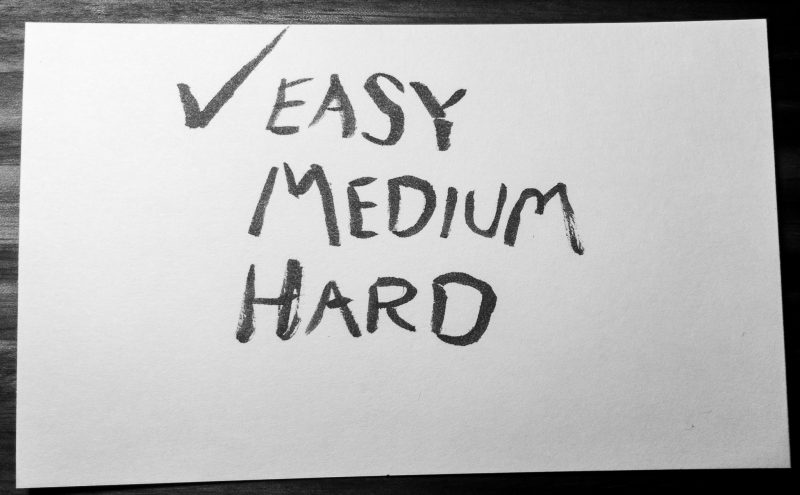 ✓ EASY
MEDIUM
HARD